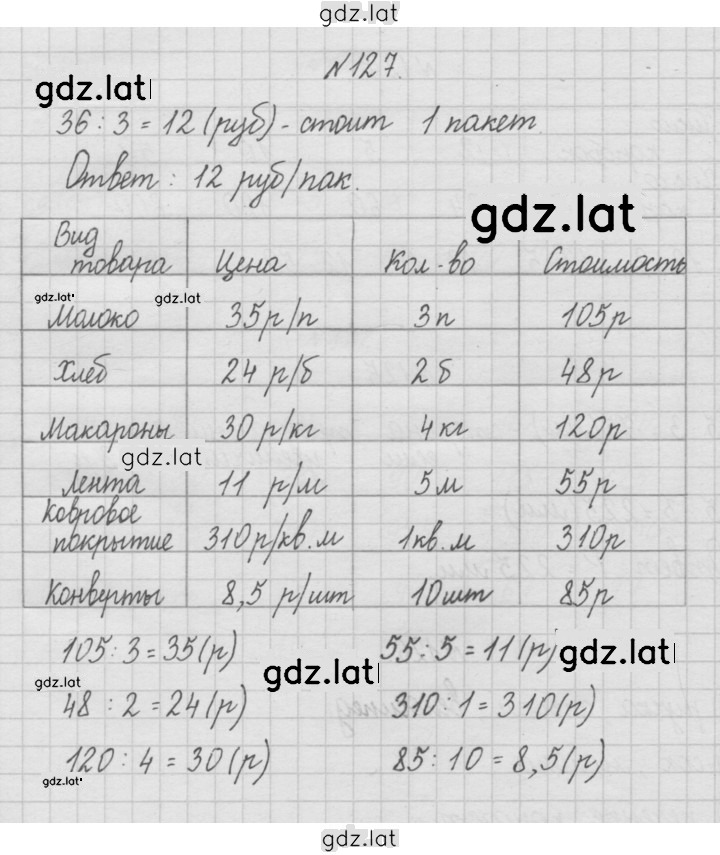 gdz.lat
№127.
gdz.lat
36 : 3 = 12 (руб) - стоит 1 пакет.
Ответ: 12 руб/пак.
gdz.lat
Вид товара Цена Кол-во Стоимость
gdz.lat gdz.lat
Молоко 35р/п 3п 105р
Хлеб 24 р/б 2б 48р
Макароны 30 р/кг 4кг 120р
gdz.lat
Лента 11 р/м 5м 55р
Ковровое покрытие 310р/кв.м 1кв.м 310р
Конверты 8,5 р/шт 10шт 85р
105 : 3 = 35(р) 55 : 5 = 11(р)
gdz.lat
gdz.lat gdz.lat
48 : 2 = 24(р) 310 : 1 = 310(р)
120 : 4 = 30(р) 85 : 10 = 8,5(р)
gdz.lat
gdz.lat